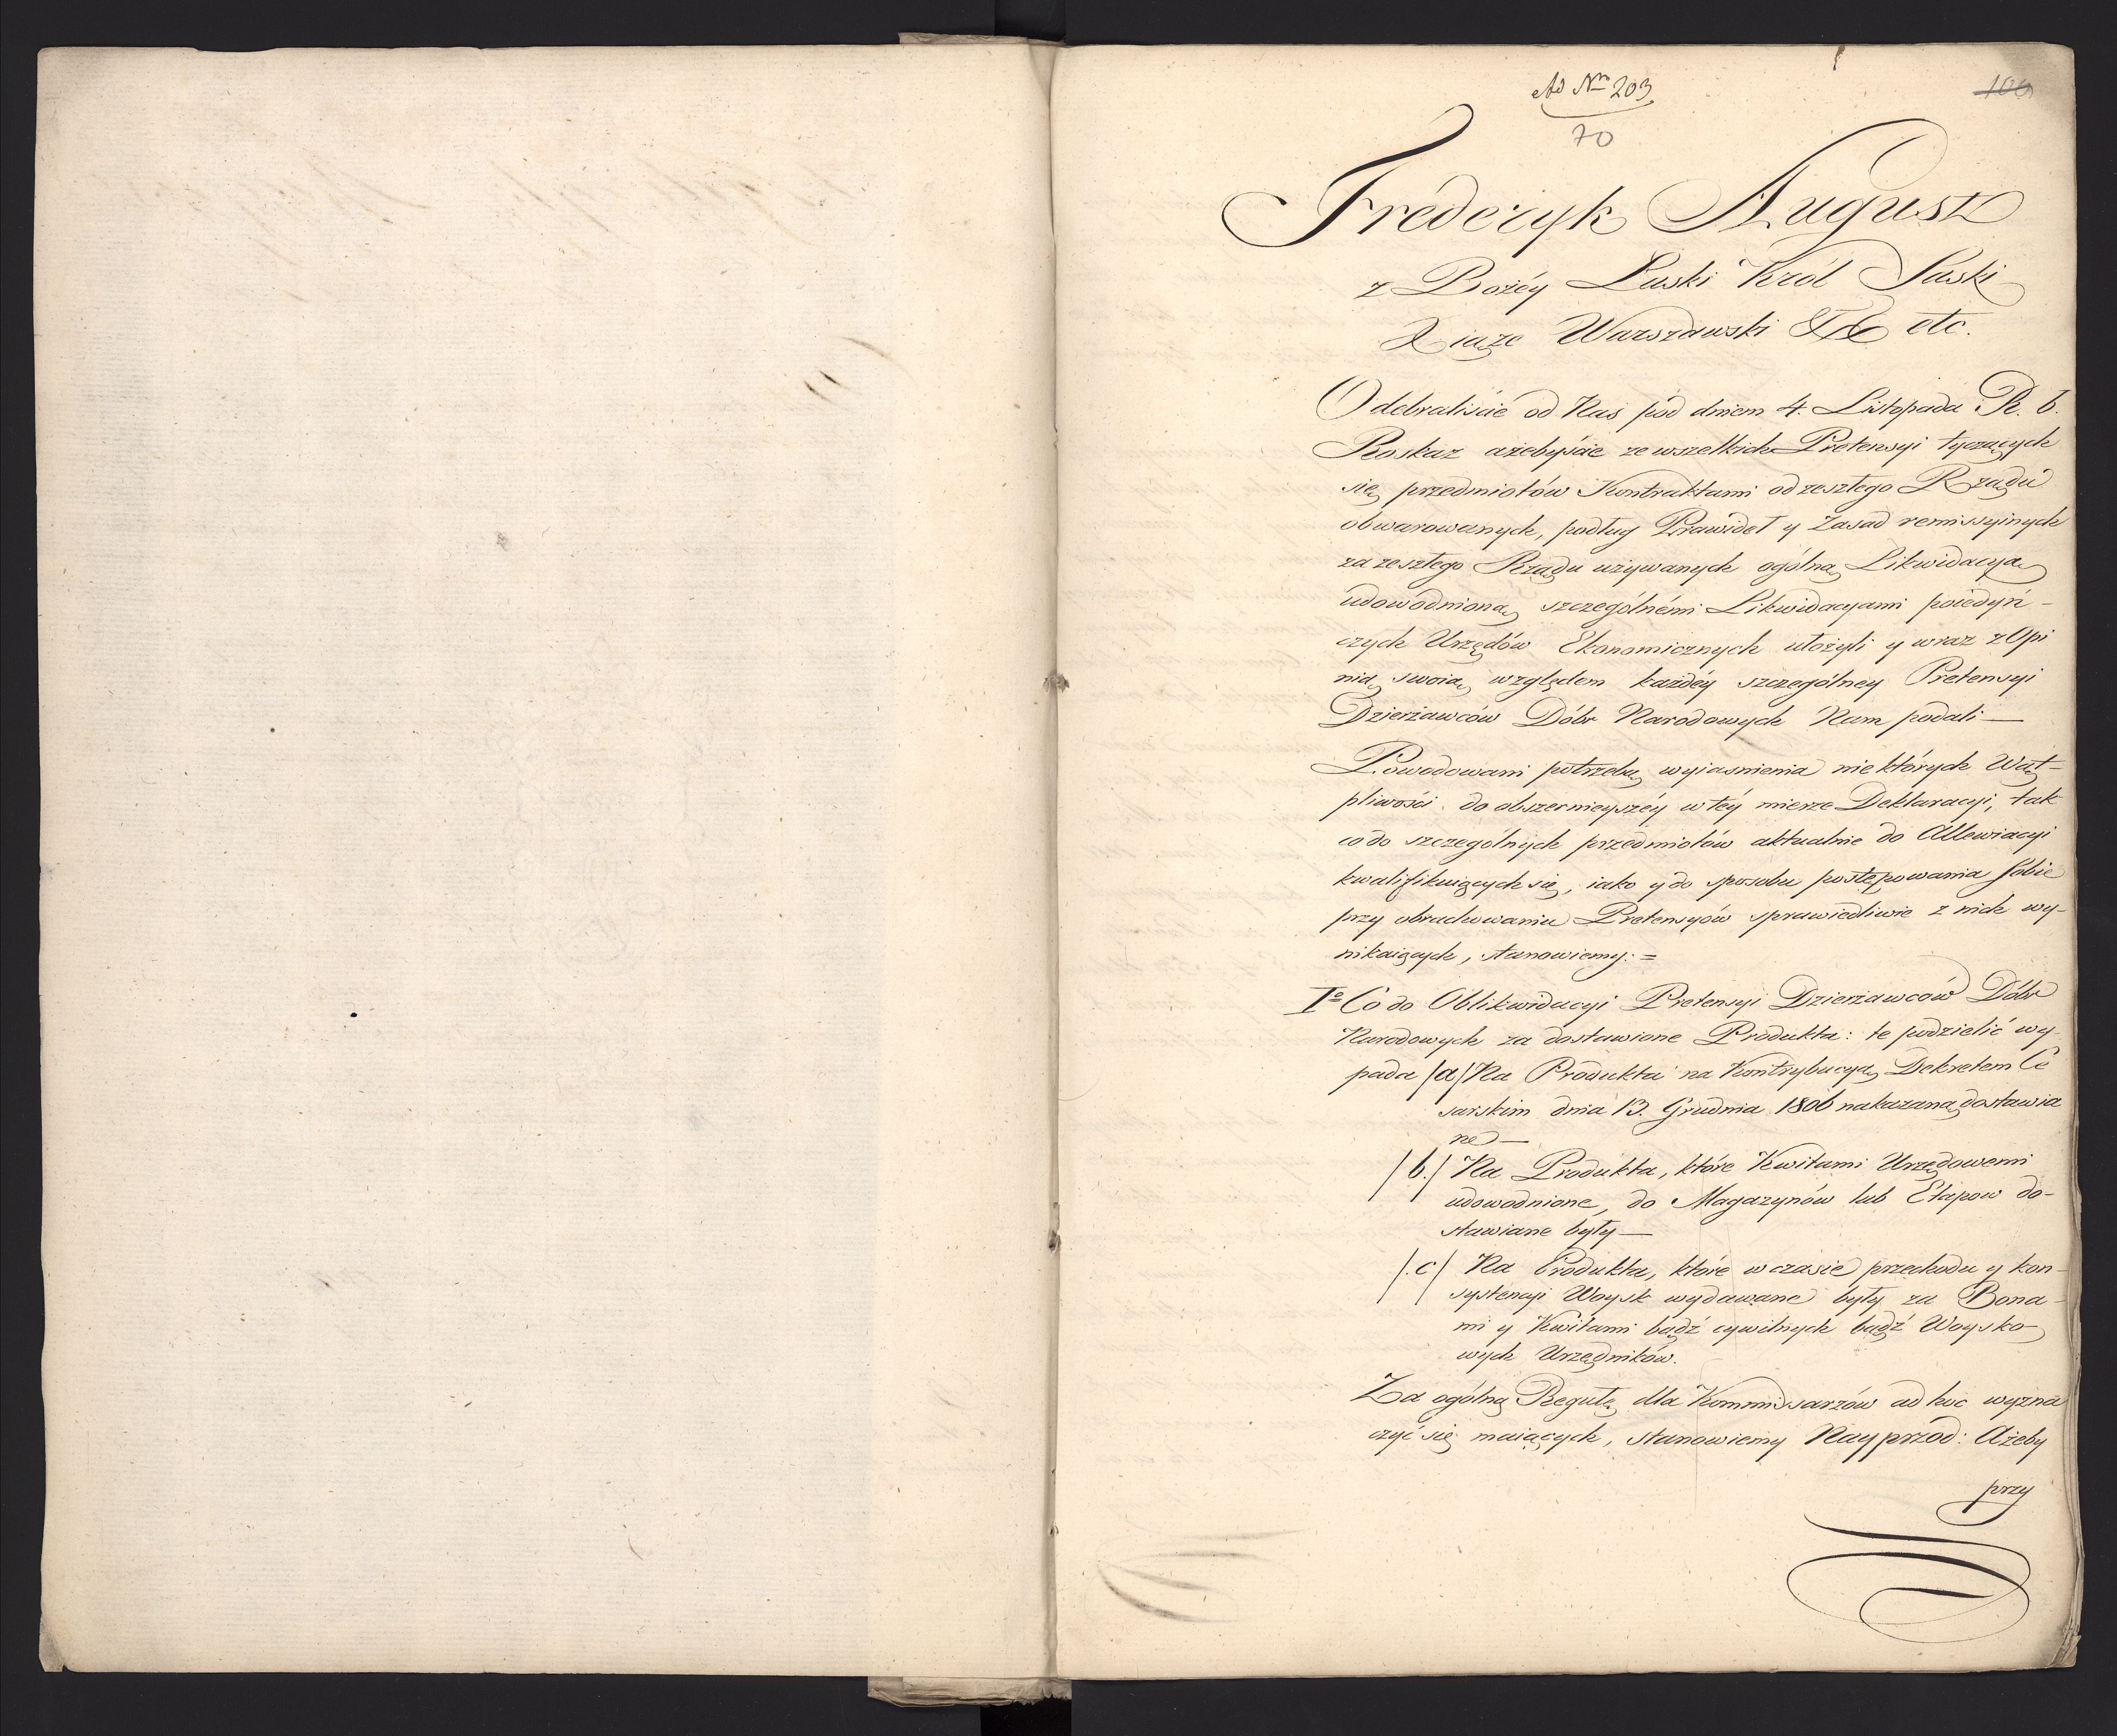 Ad Nro 203
70
106
Fréderyk August
z Bożéy Łaski Król Saski
Xiąże Warszawski &c etc.
Odebraliście od Nas pod dniem 4. Listopada R. b.
Roskaz ażebyście ze wszelkich Pretensyi tyczących
się przedmiotów Kontraktami od zeszłego Rządu
obwarowanych, podług Prawideł y Zasad remissyinych
za zeszłego Rządu używanych ogólną Likwidacyą
udowodnioną szczególnémi Likwidacyami poiedyń-
czych Urzędów Ekonomicznych ułożyli y wraz z Opi
nią swoią względem każdéy szczególney Pretensyi
Dzierżawców Dóbr Narodowych Nam podali —
Powodowani potrzebą wyiasnienia niektórych Wąt-
pliwości do obszernieyszéy w téy mierze Deklaracyi, tak
co do szczególnych przedmiotów aktualnie do Allewiacyi
kwalifikuiących się, iako y do sposobu postępowania sobie
przy obrachowaniu Pretensyów sprawiedliwie z nich wy-
nikaiących, stanowiemy: =
Io Co do Oblikwidacyi Pretensyi Dzierżawców Dóbr
Narodowych za dostawione Produkta: te podzielić wy-
pada /a/ Na Produkta na Kontrybucyą Dekretem Ce
sarskim dnia 13. Grudnia 1806 nakazaną dostawia
ne —
/b./ Na Produkta, które Kwitami Urzędowemi
udowodnione, do Magazynów lub Etapow do-
stawiane były —
/.c/ Na Produkta, które w czasie przechodu y kon-
systencyi Woysk wydawane były za Bona-
mi y Kwitami bądź cywilnych bądź Woysko
wych Urzędników.
Za ogólną Regułę dla Kommissarzów ad hoc wyzna
czyć się maiących, stanowiemy Nayprzod: Ażeby
przy